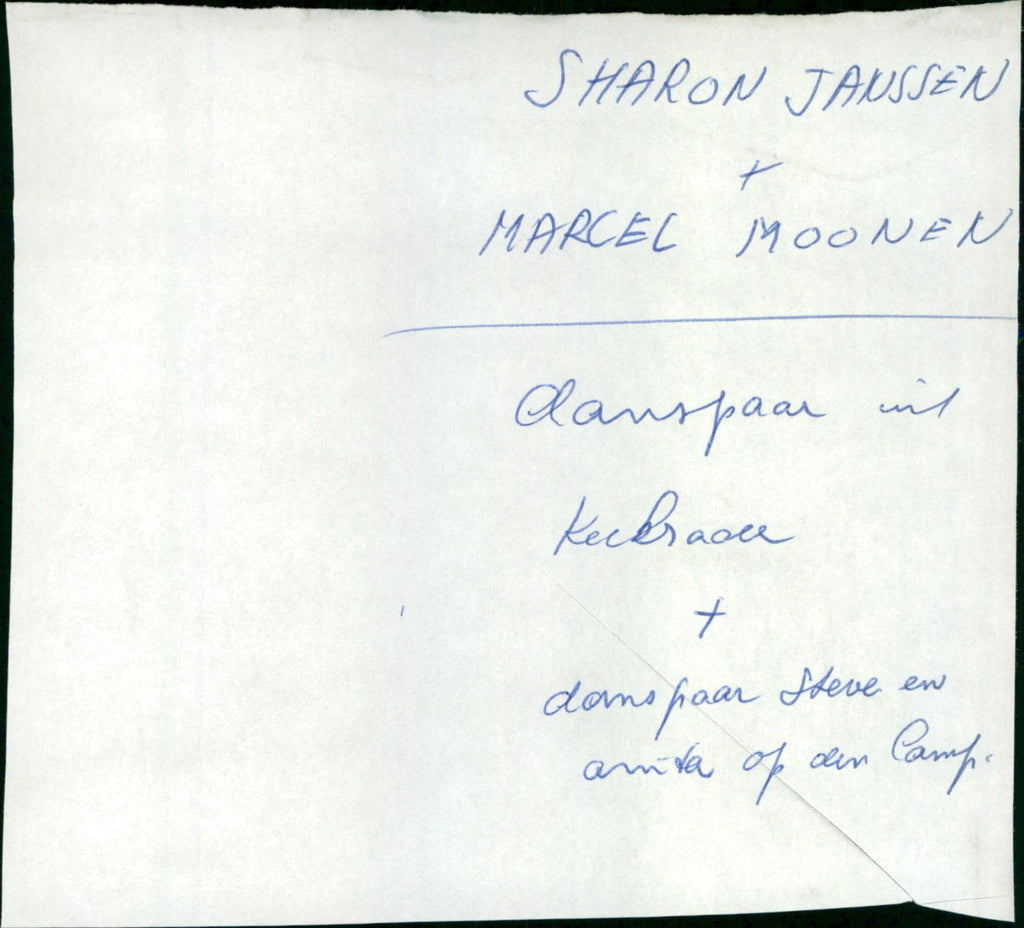 SHARON JANSSEN
+
MARCEL MOONEN
danspaar uit
Kerkrade
+
danspaar Steve en
anita op den Camp.